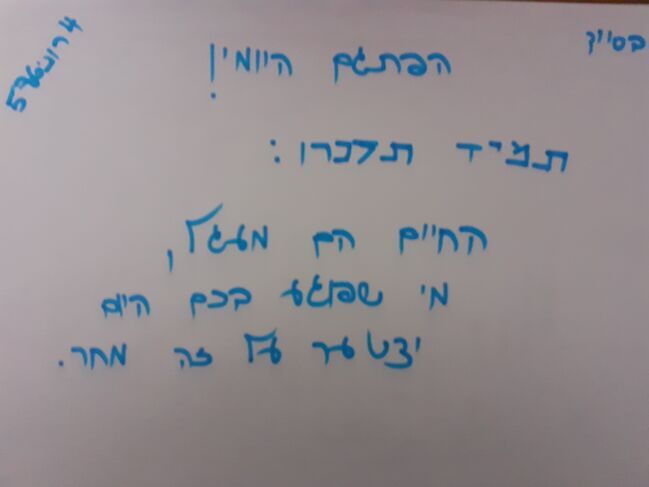 בס״ד
הפתגם היומי!
תמיד תזכרו:
החיים הם מעגל,
מי שפוגע בכם היום
יצטער על זה מחר.